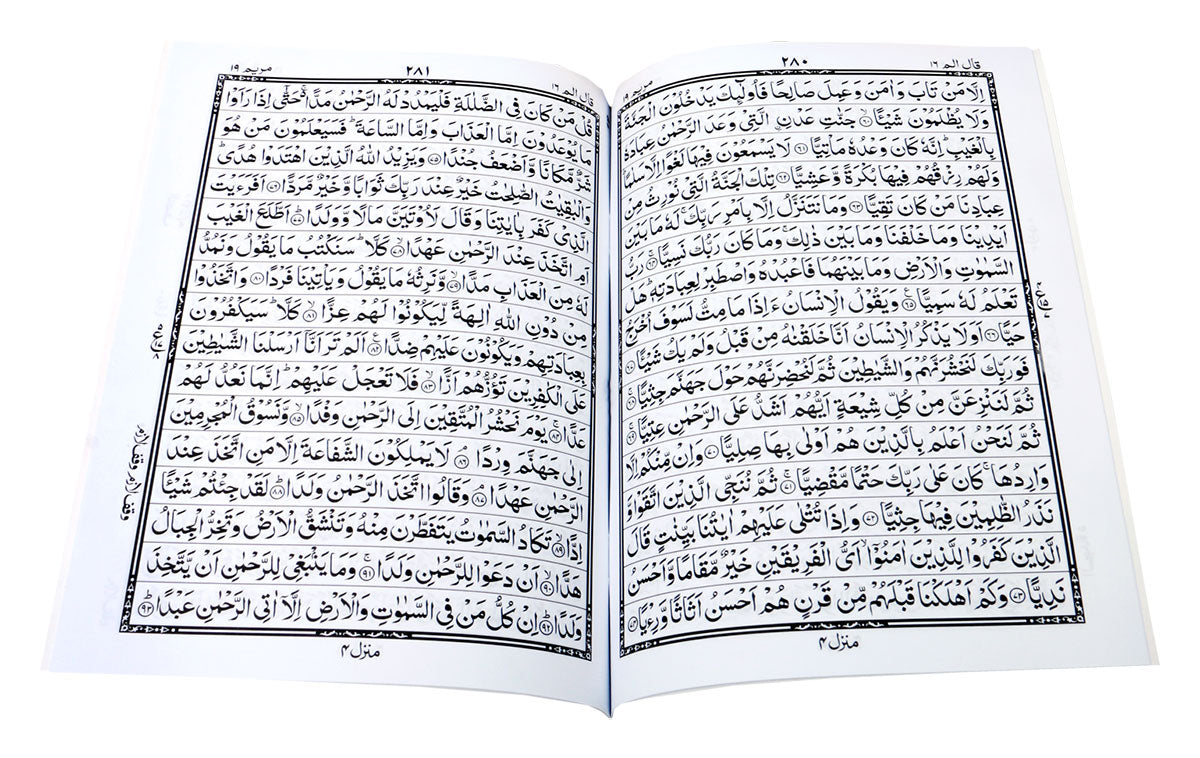 قال الم ١٦
٢٨٠
مريم ١٩
اِلَّا مَنْ تَابَ وَاٰمَنَ وَعَمِلَ صَالِحًا فَاُولٰٓئِكَ يَدْخُلُوْنَ الْجَنَّةَ
وَلَا يُظْلَمُوْنَ شَيْئًا ﴿٦٠﴾ جَنّٰتِ عَدْنِ ِۨالَّتِيْ وَعَدَ الرَّحْمٰنُ عِبَادَهٗ
بِالْغَيْبِ ؕ اِنَّهٗ كَانَ وَعْدُهٗ مَاْتِيًّا ﴿٦١﴾ لَا يَسْمَعُوْنَ فِيْهَا لَغْوًا اِلَّا سَلٰمًا
وَلَهُمْ رِزْقُهُمْ فِيْهَا بُكْرَةً وَّعَشِيًّا ﴿٦٢﴾ تِلْكَ الْجَنَّةُ الَّتِيْ نُوْرِثُ مِنْ
عِبَادِنَا مَنْ كَانَ تَقِيًّا ﴿٦٣﴾ وَمَا نَتَنَزَّلُ اِلَّا بِاَمْرِ رَبِّكَ ۚ لَهٗ مَا بَيْنَ
اَيْدِيْنَا وَمَا خَلْفَنَا وَمَا بَيْنَ ذٰلِكَ ۚ وَمَا كَانَ رَبُّكَ نَسِيًّا ﴿٦٤﴾ رَبُّ
السَّمٰوٰتِ وَالْاَرْضِ وَمَا بَيْنَهُمَا فَاعْبُدْهُ وَاصْطَبِرْ لِعِبَادَتِهٖ ؕ هَلْ
تَعْلَمُ لَهٗ سَمِيًّا ﴿٦٥﴾ وَيَقُوْلُ الْاِنْسَانُ ءَاِذَا مَا مِتُّ لَسَوْفَ اُخْرَجُ
حَيًّا ﴿٦٦﴾ اَوَلَا يَذْكُرُ الْاِنْسَانُ اَنَّا خَلَقْنٰهُ مِنْ قَبْلُ وَلَمْ يَكُ شَيْئًا ﴿٦٧﴾
فَوَرَبِّكَ لَنَحْشُرَنَّهُمْ وَالشَّيٰطِيْنَ ثُمَّ لَنُحْضِرَنَّهُمْ حَوْلَ جَهَنَّمَ جِثِيًّا ﴿٦٨﴾
ثُمَّ لَنَنْزِعَنَّ مِنْ كُلِّ شِيْعَةٍ اَيُّهُمْ اَشَدُّ عَلَى الرَّحْمٰنِ عِتِيًّا ﴿٦٩﴾
ثُمَّ لَنَحْنُ اَعْلَمُ بِالَّذِيْنَ هُمْ اَوْلٰى بِهَا صِلِيًّا ﴿٧٠﴾ وَاِنْ مِّنْكُمْ اِلَّا
وَارِدُهَا ۚ كَانَ عَلٰى رَبِّكَ حَتْمًا مَّقْضِيًّا ﴿٧١﴾ ثُمَّ نُنَجِّي الَّذِيْنَ اتَّقَوْا وَّ
نَذَرُ الظّٰلِمِيْنَ فِيْهَا جِثِيًّا ﴿٧٢﴾ وَاِذَا تُتْلٰى عَلَيْهِمْ اٰيٰتُنَا بَيِّنٰتٍ قَالَ
الَّذِيْنَ كَفَرُوْا لِلَّذِيْنَ اٰمَنُوْۤا ۙ اَيُّ الْفَرِيْقَيْنِ خَيْرٌ مَّقَامًا وَّاَحْسَنُ
نَدِيًّا ﴿٧٣﴾ وَكَمْ اَهْلَكْنَا قَبْلَهُمْ مِّنْ قَرْنٍ هُمْ اَحْسَنُ اَثَاثًا وَّرِءْيًا ﴿٧٤﴾
منزل ٤
قال الم ١٦
٢٨١
مريم ١٩
قُلْ مَنْ كَانَ فِي الضَّلٰلَةِ فَلْيَمْدُدْ لَهُ الرَّحْمٰنُ مَدًّا ۚ حَتّٰۤى اِذَا رَاَوْا
مَا يُوْعَدُوْنَ اِمَّا الْعَذَابَ وَاِمَّا السَّاعَةَ ؕ فَسَيَعْلَمُوْنَ مَنْ هُوَ
شَرٌّ مَّكَانًا وَّاَضْعَفُ جُنْدًا ﴿٧٥﴾ وَيَزِيْدُ اللّٰهُ الَّذِيْنَ اهْتَدَوْا هُدًى ؕ
وَالْبٰقِيٰتُ الصّٰلِحٰتُ خَيْرٌ عِنْدَ رَبِّكَ ثَوَابًا وَّخَيْرٌ مَّرَدًّا ﴿٧٦﴾ اَفَرَءَيْتَ
الَّذِيْ كَفَرَ بِاٰيٰتِنَا وَقَالَ لَاُوْتَيَنَّ مَالًا وَّوَلَدًا ﴿٧٧﴾ اَطَّلَعَ الْغَيْبَ
اَمِ اتَّخَذَ عِنْدَ الرَّحْمٰنِ عَهْدًا ﴿٧٨﴾ كَلَّا ؕ سَنَكْتُبُ مَا يَقُوْلُ وَنَمُدُّ
لَهٗ مِنَ الْعَذَابِ مَدًّا ﴿٧٩﴾ وَّنَرِثُهٗ مَا يَقُوْلُ وَيَاْتِيْنَا فَرْدًا ﴿٨٠﴾ وَاتَّخَذُوْا
مِنْ دُوْنِ اللّٰهِ اٰلِهَةً لِّيَكُوْنُوْا لَهُمْ عِزًّا ﴿٨١﴾ كَلَّا ؕ سَيَكْفُرُوْنَ
بِعِبَادَتِهِمْ وَيَكُوْنُوْنَ عَلَيْهِمْ ضِدًّا ﴿٨٢﴾ اَلَمْ تَرَ اَنَّاۤ اَرْسَلْنَا الشَّيٰطِيْنَ
عَلَى الْكٰفِرِيْنَ تَؤُزُّهُمْ اَزًّا ﴿٨٣﴾ فَلَا تَعْجَلْ عَلَيْهِمْ ؕ اِنَّمَا نَعُدُّ لَهُمْ
عَدًّا ﴿٨٤﴾ يَوْمَ نَحْشُرُ الْمُتَّقِيْنَ اِلَى الرَّحْمٰنِ وَفْدًا ﴿٨٥﴾ وَّنَسُوْقُ الْمُجْرِمِيْنَ
اِلٰى جَهَنَّمَ وِرْدًا ﴿٨٦﴾ لَا يَمْلِكُوْنَ الشَّفَاعَةَ اِلَّا مَنِ اتَّخَذَ عِنْدَ
الرَّحْمٰنِ عَهْدًا ﴿٨٧﴾ وَقَالُوا اتَّخَذَ الرَّحْمٰنُ وَلَدًا ﴿٨٨﴾ لَقَدْ جِئْتُمْ شَيْئًا
اِدًّا ﴿٨٩﴾ تَكَادُ السَّمٰوٰتُ يَتَفَطَّرْنَ مِنْهُ وَتَنْشَقُّ الْاَرْضُ وَتَخِرُّ الْجِبَالُ
هَدًّا ﴿٩٠﴾ اَنْ دَعَوْا لِلرَّحْمٰنِ وَلَدًا ﴿٩١﴾ وَمَا يَنْۢبَغِيْ لِلرَّحْمٰنِ اَنْ يَّتَّخِذَ
وَلَدًا ﴿٩٢﴾ اِنْ كُلُّ مَنْ فِي السَّمٰوٰتِ وَالْاَرْضِ اِلَّاۤ اٰتِي الرَّحْمٰنِ عَبْدًا ﴿٩٣﴾
وقف لازم
وقف لازم
منزل ٤